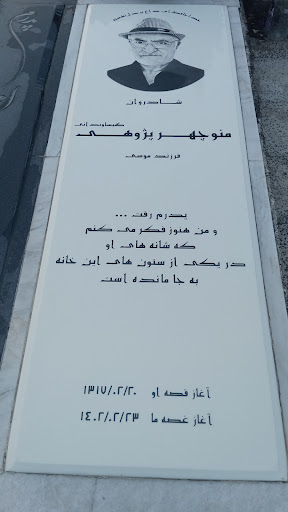 شادروان
منوچهر پژوهی
فرزند موسی
پدرم رفت ...
و من هنوز فکر می کنم
که شانه های او
در یکی از ستون های این خانه
به جا مانده است
آغاز قصه او ۱۳۱۷/۰۲/۲۰
آغاز غصه ما ۱۴۰۲/۰۲/۲۳